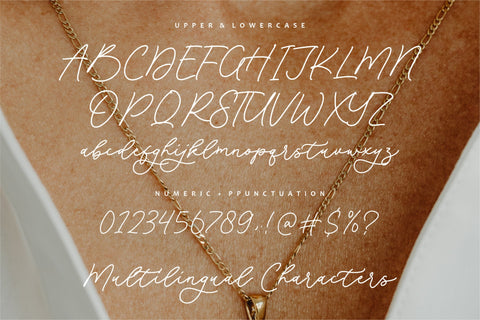 UPPER & LOWERCASE
ABCDEFGHIJKLMN
OPQRSTUVWXYZ
abcdefghijklmnopqrstuvwxyz
NUMERIC + PPUNCTUATION
0123456789,.!@#$%?
Multilingual Characters